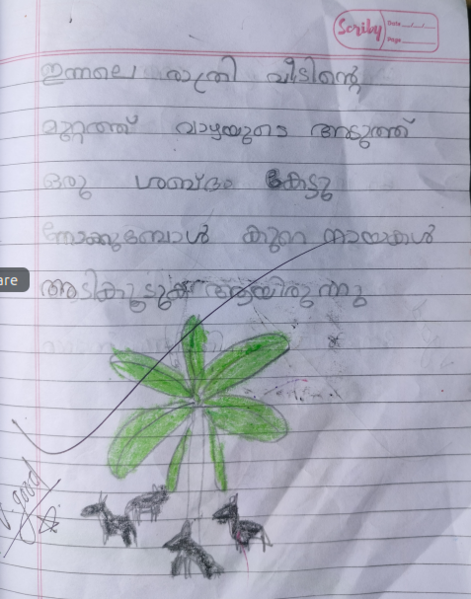 Scriby
Date
Page
ഇന്നലെ രാത്രി വീടിന്റെ
മുറ്റത്ത് വാഴയുടെ അടുത്ത്
ഒരു ശബ്ദം കേട്ടു
നോക്കുമ്പോൾ കുറെ നായകൾ
ആടികൂടുക ആയിരുന്നു
V. good
are